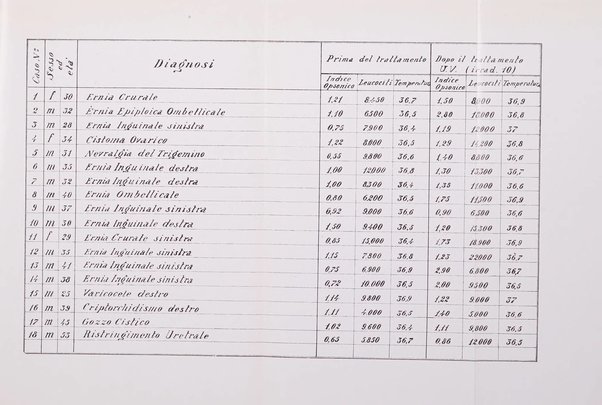 Caso N° Sesso ed età Diagnosi Prima del trattamento Dopo il trattamento
U.V. (irrad. 10)
Indice Opsonico Leucociti Temperatura Indice Opsonico Leucociti Temperatura
1 f 50 Ernia Crurale 1,21 8450 36,7 1,50 8000 36,9
2 m 32 Ernia Epiploica Ombellicale 1,10 6500 36,5 2,80 36,8
3 m 28 Ernia Inguinale sinistra 0,75 7900 36,4 1,19 12000 37
4 f 34 Cistoma Ovarico 1,22 8000 36,5 1,29 14200 36,8
5 m 51 Nevralgia del Trigemino 0,55 9800 36,6 1,40 8800 36,6
6 m 35 Ernia Inguinale destra 1,00 12000 36,8 1,30 13300 36,7
7 m 32 Ernia Inguinale destra 1,00 8300 36,4 1,35 11000 36,6
8 m 40 Ernia Ombellicale 0,80 6200 36,5 1,75 11500 36,9
9 m 37 Ernia Inguinale sinistra 0,92 9,000 36,6 0,90 6500 36,6
10 m 50 Ernia Inguinale destra 1,50 9400 36,5 1,20 15300 36,8
11 f 29 Ernia Crurale sinistra 0,85 15,000 36,4 1,75 18,900 36,9
12 m 35 Ernia Inguinale sinistra 1,15 7,800 36,8 1,25 22000 36,7
13 m 41 Ernia Inguinale sinistra 0,75 6,900 36,9 2,90 6,800 36,7
14 m 38 Ernia Inguinale sinistra 0,72 10,000 36,5 2,00 9500 36,5
15 m 25 Varicocele destro 1,14 9800 36,9 1,22 9,000 37
16 m 39 Criptorchidismo destro 1,11 4,000 36,5 1,40 5,000 36,6
17 m 45 Gozzo Cistico 1,02 9,600 36,4 1,11 9,800 36,5
18 m 53 Ristringimento Uretrale 0,65 5,850 36,7 0,86 12,000 36,5